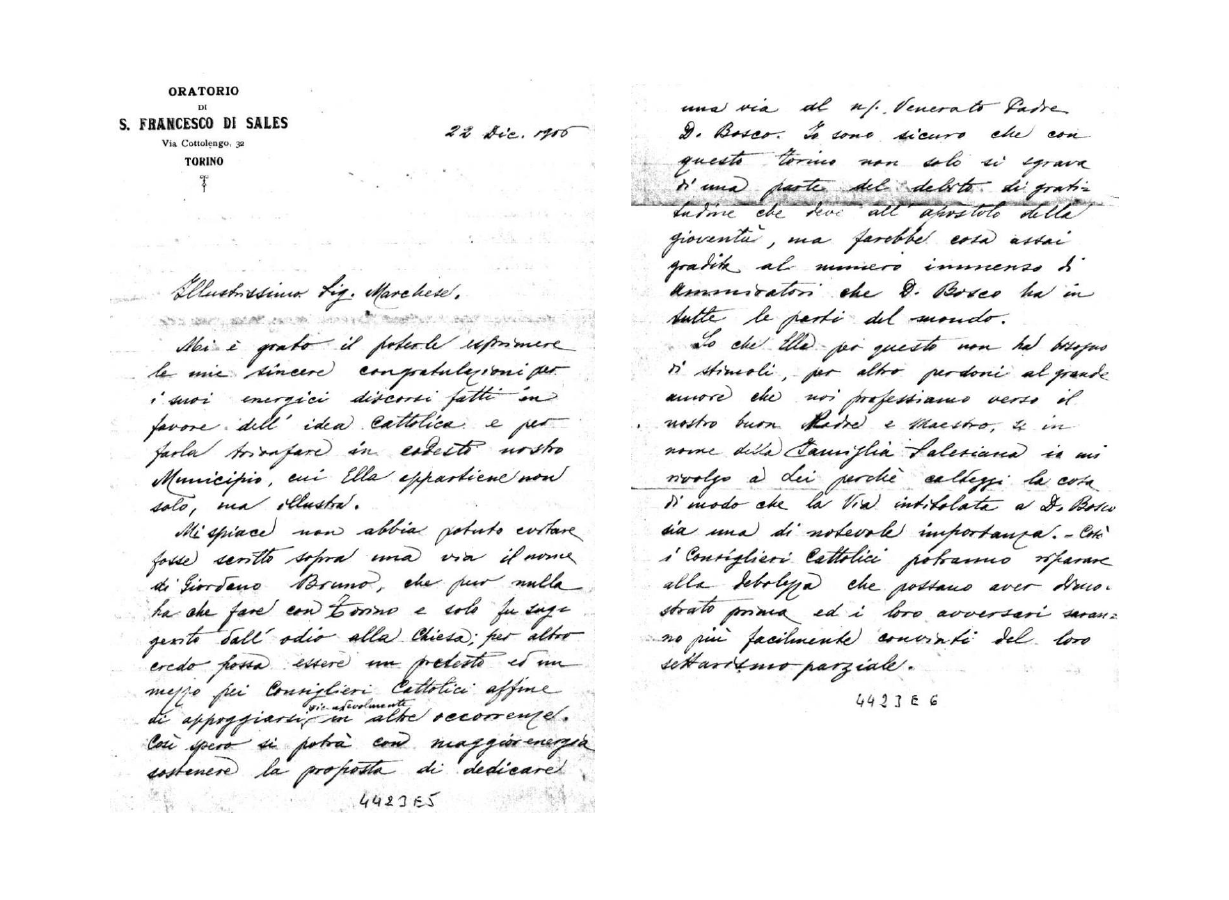 ORATORIO
DI
S. FRANCESCO DI SALES
Via Cottolengo, 32
TORINO
22 Dic. 1906
Illustrissimo Sig. Marchese.
Mi è grato il poterle esprimere
le mie sincere congratulazioni per
i suoi energici discorsi fatti in
favore dell' idea Cattolica e per
farla trionfare in codesto nostro
Municipio, cui Ella appartiene non
solo, ma illustra.
Mi spiace non abbia potuto evitare
fosse scritto sopra una via il nome
di Giordano Bruno, che pur nulla
ha che fare con Torino e solo fu sug-
gerito dall' odio alla Chiesa; per altro
credo possa essere un pretesto ed un
mezzo pei Consiglieri Cattolici affine
di appoggiarsi vicendevolmente in altre occorrenze.
Così spero si potrà con maggior energia
sostenere la proposta di dedicare
4423E5
una via al n/. Venerato Padre
D. Bosco. Io sono sicuro che con
questo Torino non solo si sgrava
di una parte del debito di grati=
tudine che deve all' apostolo della
gioventù, ma farebbe cosa assai
gradita al numero immenso di
ammiratori che D. Bosco ha in
tutte le parti del mondo.
So che Ella per questo non ha bisogno
di stimoli, per altro perdoni al grande
amore che noi professiamo verso il
nostro buon Padre e Maestro, se in
nome della Famiglia Salesiana io mi
rivolgo a Lei perchè caldeggi la cosa
di modo che la Via intitolata a D. Bosco
sia una di notevole importanza. - Così
i Consiglieri Cattolici potranno riparare
alla debolezza che possano aver dimo-
strato prima ed i loro avversari saran=
no più facilmente convinti del loro
settarismo parziale.
4423E6